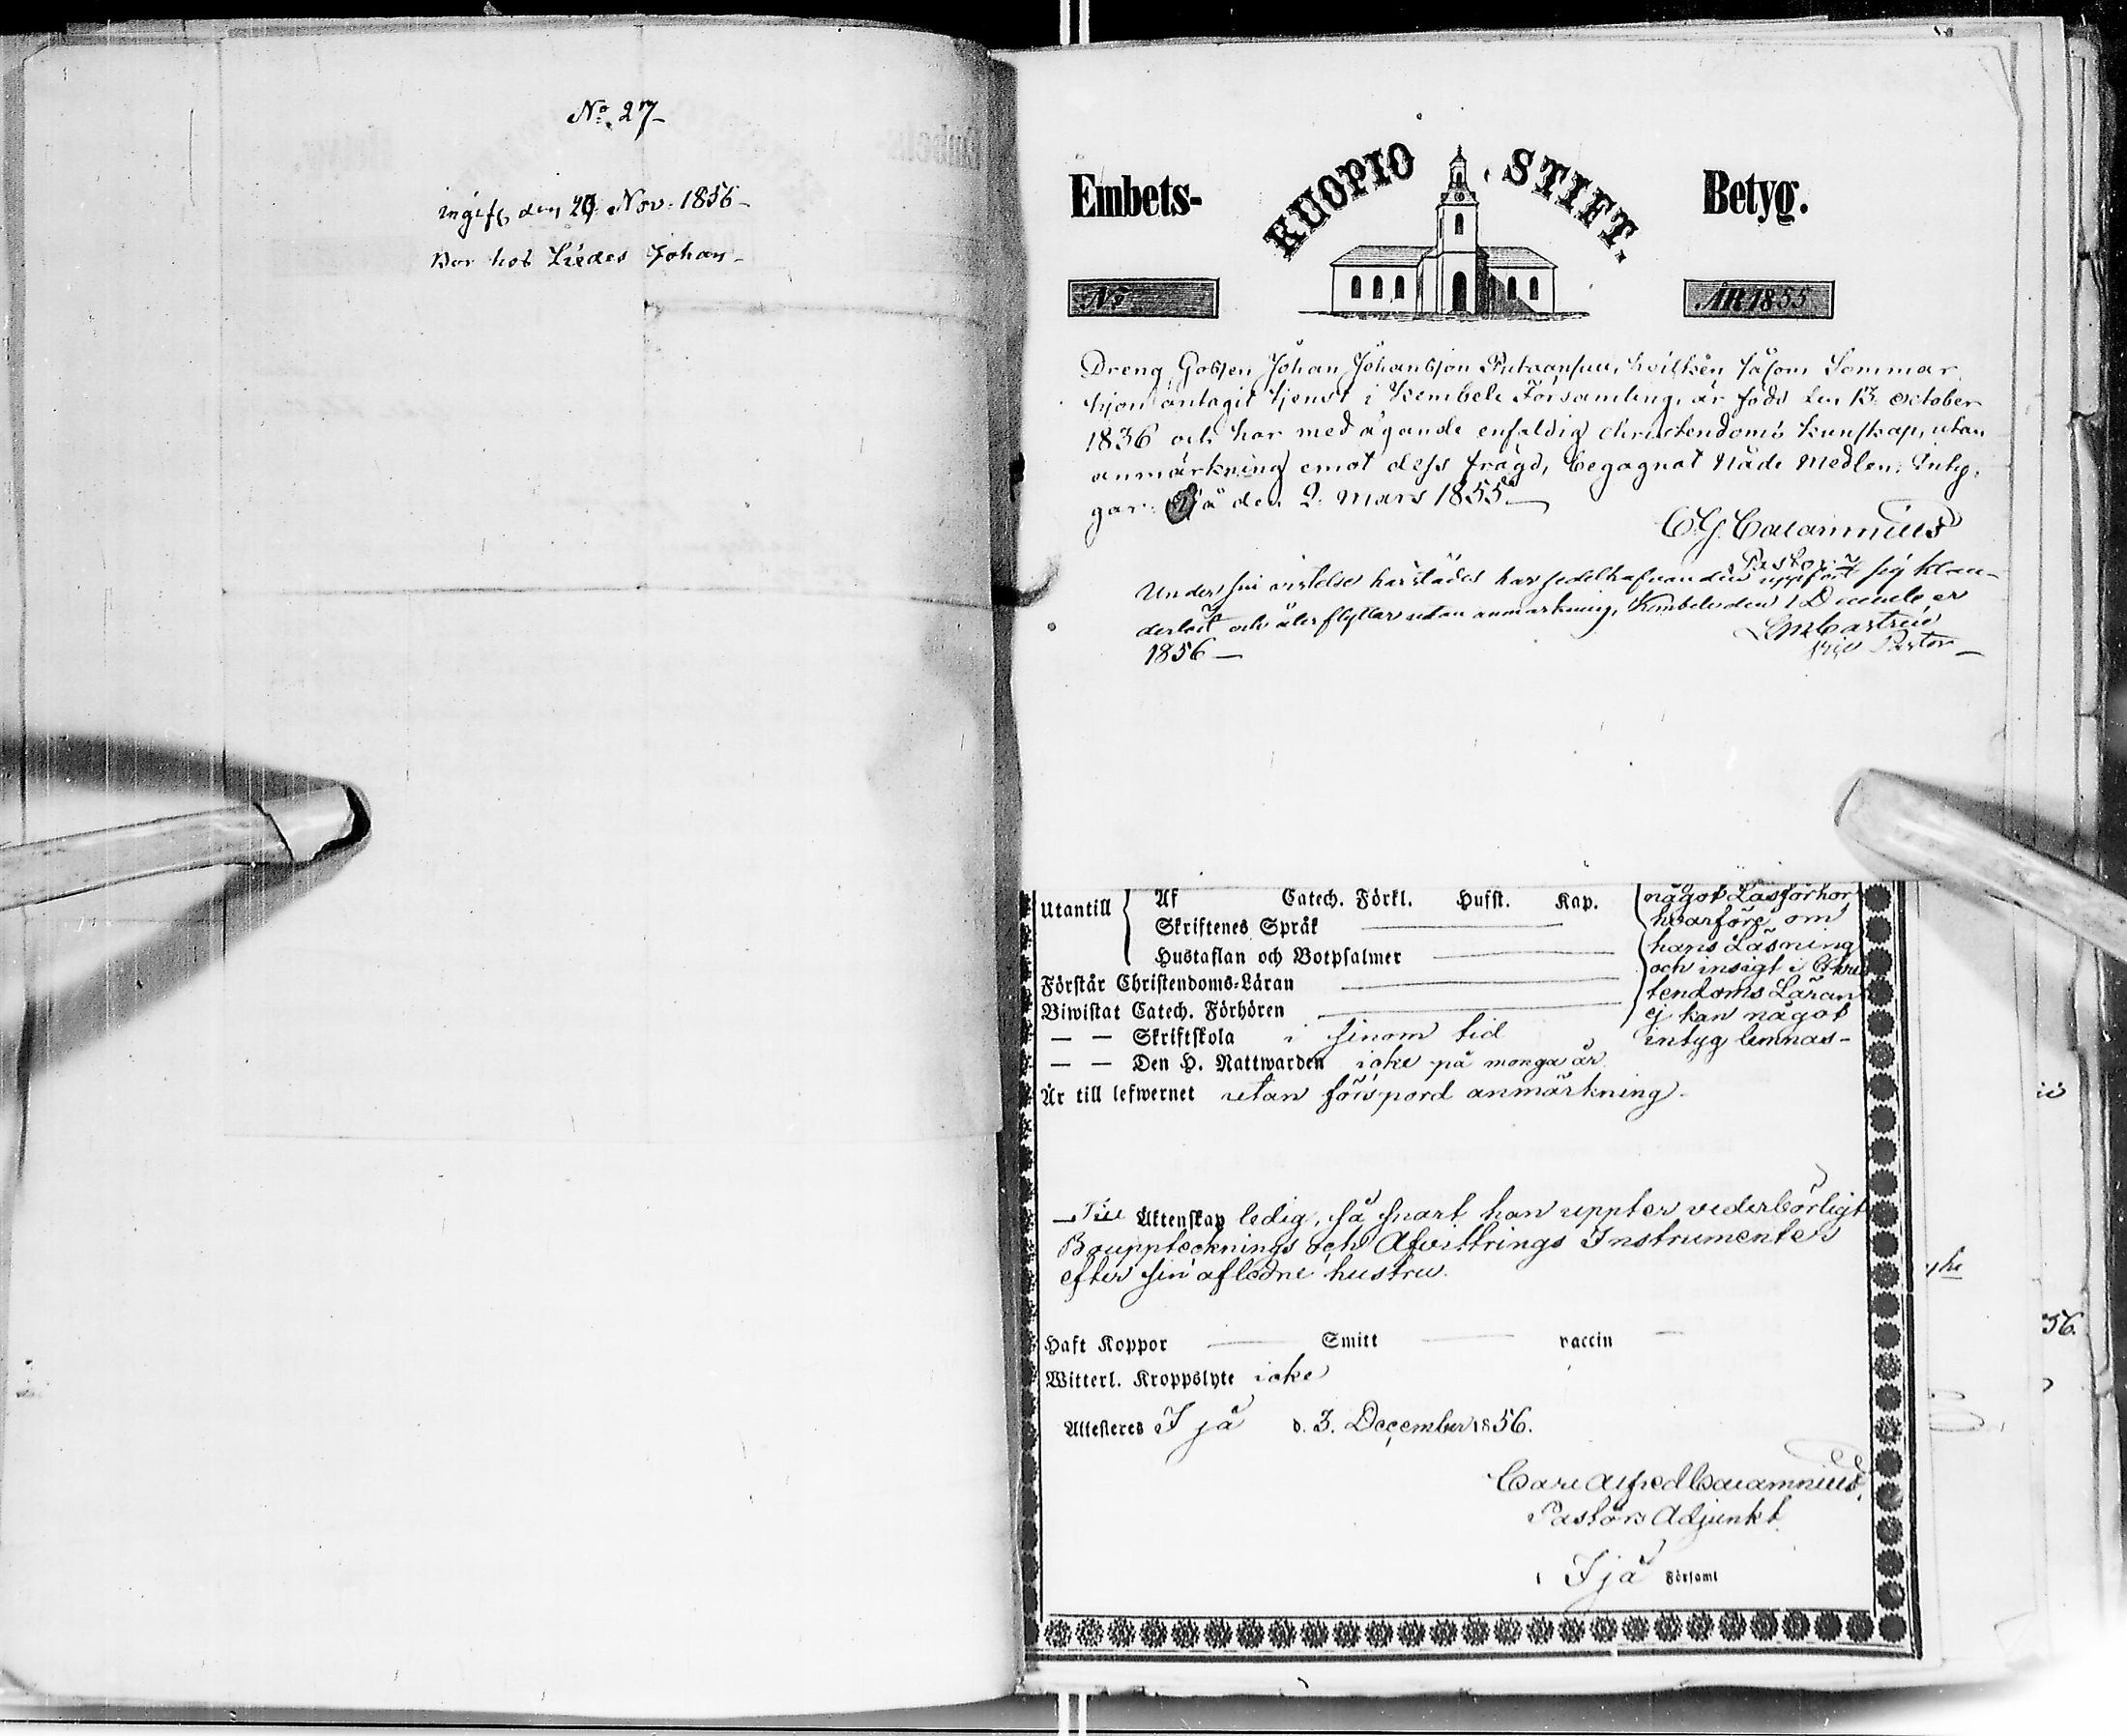 No. 27
ingift den 29 Nov. 1856
Bor hos Liedes Johan
Embets-
KUOPIO STIFT.
Betyg.
No
ÅR 1855
Dreng Gossen Johan Johansson hvilken såsom Sommar
hjon antagit tjenst i Kembele Församling, är född den 13 October
1836 och har med ägande enfaldig christendoms kunskap, utan
anmärkning emot dess frägd, begagnat Nåde Medlen. Inty-
gar. Ijå den 2. Mars 1855
C.G. Calamnius
Pastor
Under sin vistelse härstädes har sedelhafvanden uppfört sig klan-
derlöst och återflyttar utan anmärkning, Kembele den 1 December
1856
Castrén
Pastor
Utantill Af Catech. Förkl. Husst. Kap. något Läsförhör
Skriftenes Språk hvarföre om
Hustaflan och Botpsalmer hans Läsning
och insigt i Chris
Förstår Christendoms-Läran tendoms Läran
Biwistat Catech. Förhören ej kan något
— — Skriftskola i sinom tid intyg lemnas-
— — Den H. Nattwarden icke på monga år
Är till lefwernet utan förspord anmärkning.
Till Äktenskap ledig, så snart han uppter vederbörligt
Boupptecknings och Afvittrings Instrumenter
efter sin aflidne hustru.
Haft Koppor Smitt vaccin
Witterl. Kroppslyte icke
Attesteres Ijå d. 3. December 1856.
Carl Alfred Calamnius,
Pastors Adjunkt
i Ijå Församl
56.